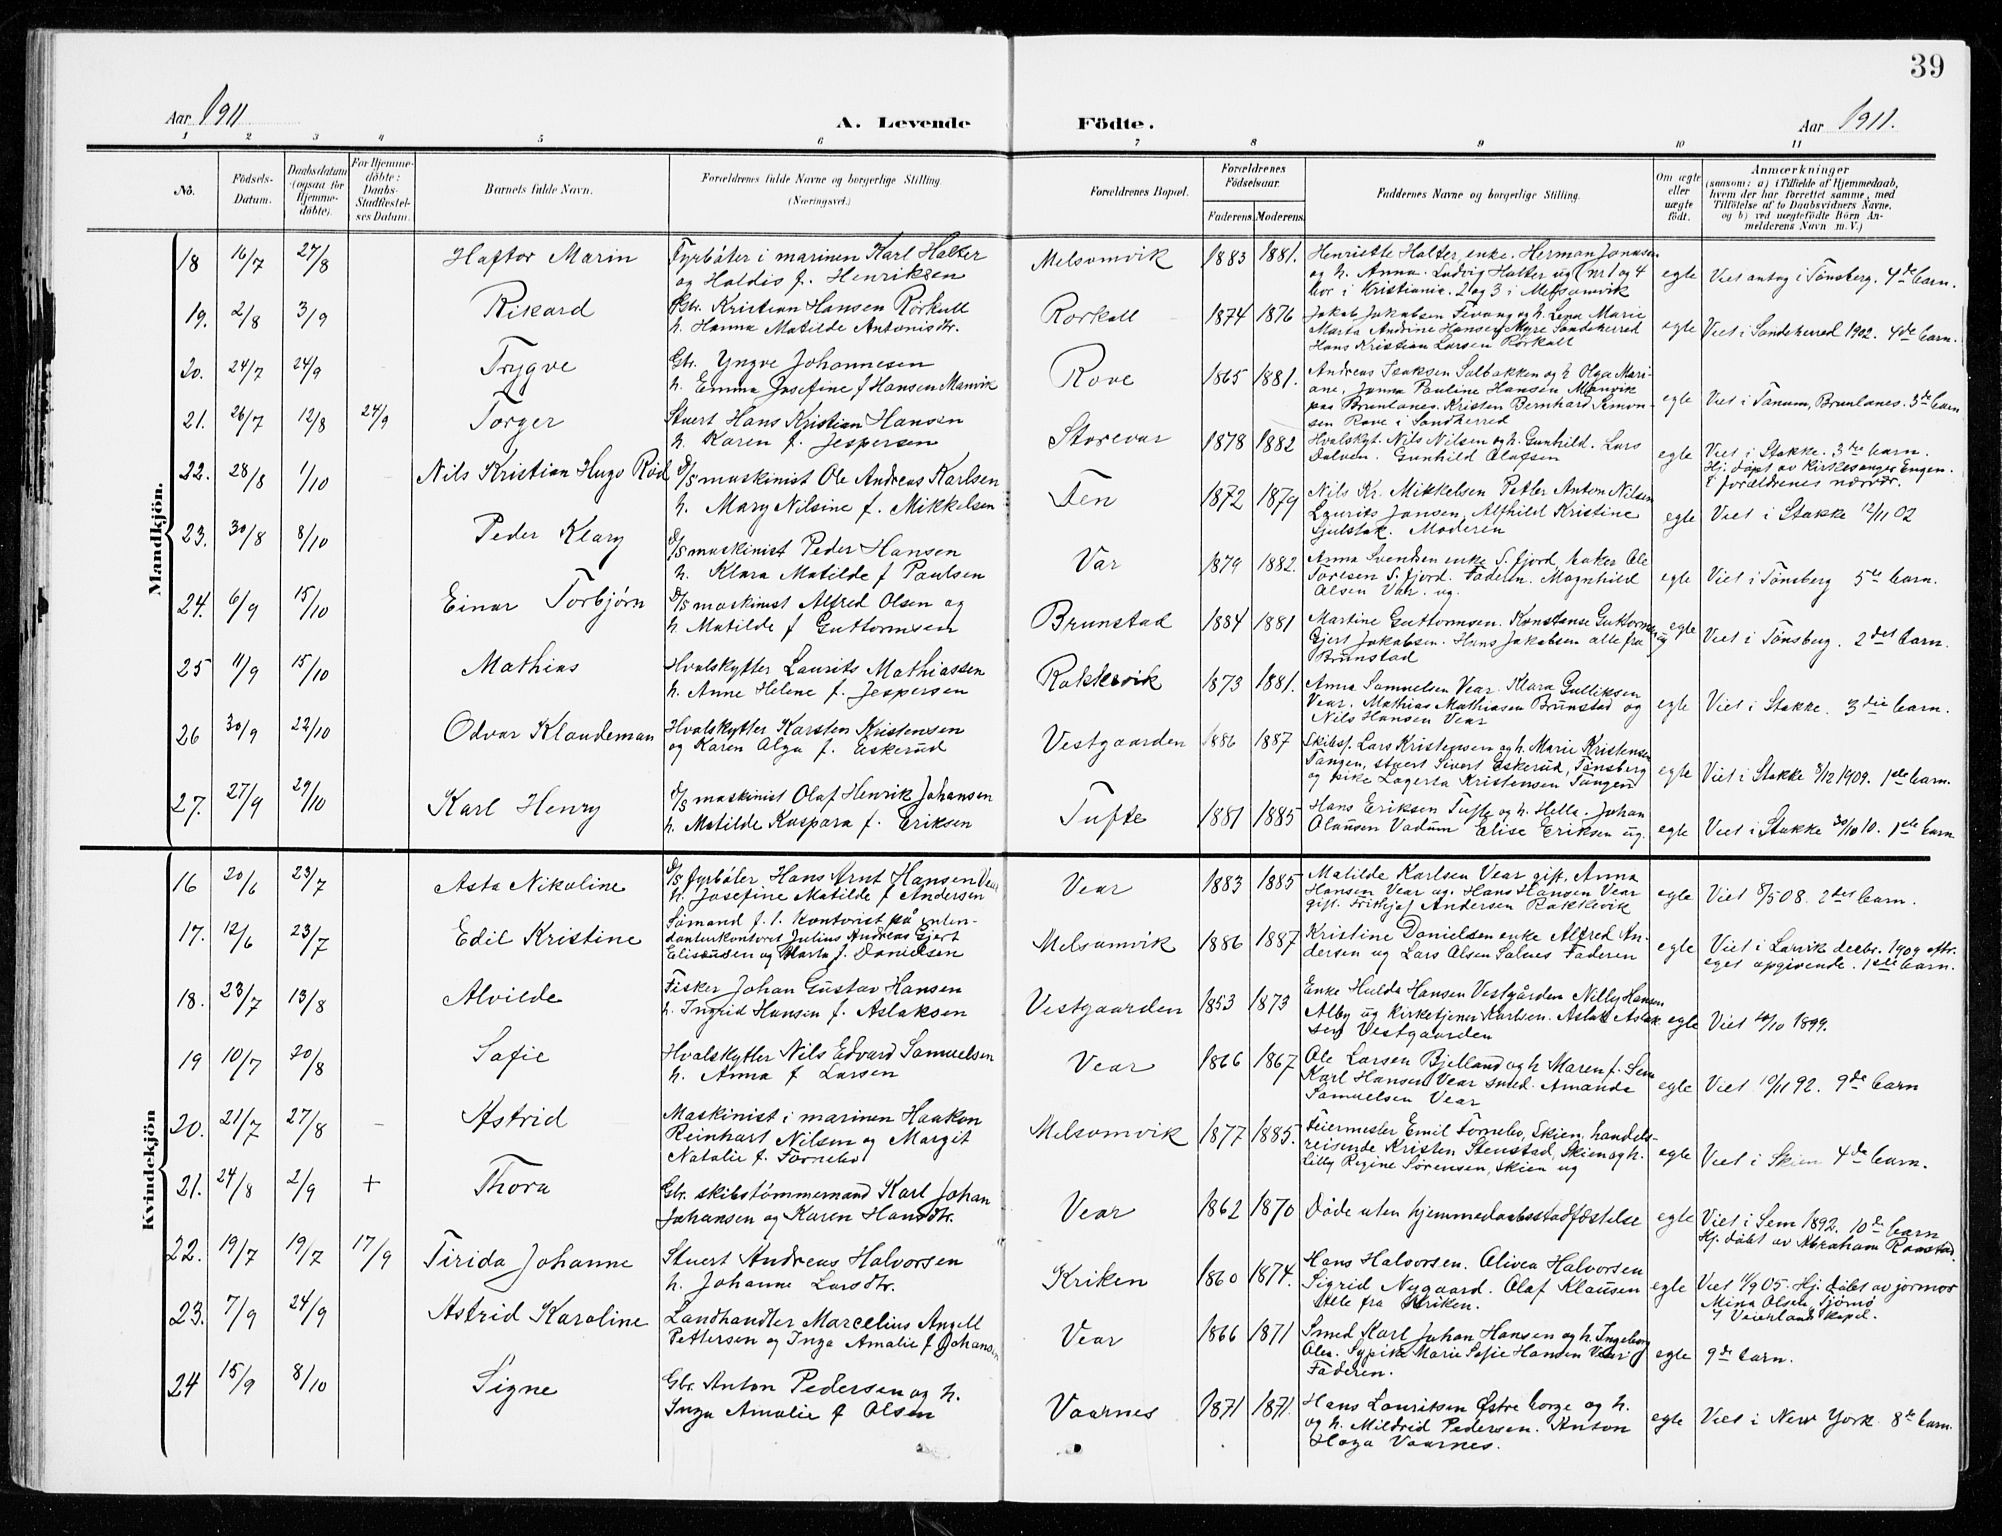 39
Aar 1911
A. Levende Födte.
Aar 1911.
1 2 3 4 5 6 7 8 9 10 11
No.
Födsels-
Datum.
Daabsdatum
(ogsaa for
Hjemme-
döbte).
For Hjemme-
döbte:
Daabs-
Stadfæstel-
ses Datum.
Barnets fulde Navn.
Forældrenes fulde Navne og borgerlige Stilling.
(Næringsvei.)
Forældrenes Bopæl.
Forældrenes
Födselsaar.
Faderens. Moderens.
Faddernes Navne og borgerlige Stilling.
Om ægte
eller
uægte
födt.
Anmærkninger
(saasom: a) i Tilfælde af Hjemmedaab,
hvem der har forrettet samme, med
Tilföielse af to Daabsvidners Navne,
og b) ved uægtefödte Börn An-
melderens Navn m. V.)
Mandkjön.
18 16/7 27/8 Haftor Marin
Fyrbøter i marinen Karl Holter
og Haldis f. Henriksen
Melsomvik 1883 1881.
Henriette Holter, enke. Herman Jonassen
og h. Anna. Ludvig Holter ug (nr 1 og 4
bor i Kristiania. 2 og 3 i Melsomvik
egte Viet antag i Tønsberg. 4de barn.
19. 2/8 3/9 Rikard
Gbr. Kristian Hansen Rørkoll
h. Hanna Matilde Antonisdtr.
Rørkoll 1874 1876
Jakob Jakobsen Tevaag og h. Lena Marie
Marta Andrine Hansen Myre Sandeherred
Hans Kristian Larsen Rørkoll
egte Viet i Sandeherred 1902. 4de barn.
20. 24/7 24/9 Trygve
Gbr. Yngve Johannesen
h. Emma Josefine f Hansen Manvik
Rove 1865 1881.
Andreas Isaksen Solbakken og h Olga Mari-
ane, Janna Pauline Hansen Manvik
paa Brunlanes. Kristen Bernhard Simon-
sen Rove i Sandherred
egte Viet i Tanum, Brunlanes. 3de barn
21. 26/7 12/8 24/9 Torger
Stuert Hans Kristian Hansen
h. Karen f. Jespersen
Storevar 1878 1882
Hvalskyt. Nils Nilsen og h. Gunhild. Lars
Dalven. Gunhild Olafsen
egte Viet i Stokke. 3die barn.
Hj. døpt av kirkesanger Engen.
i forældrenes nærvær.
22. 28/8 1/10 Nils Kristian Hugo Rød
D/S maskinist Ole Andreas Karlsen
h. Mary Nilsine f. Mikkelsen
Fen 1872 1879
Nils Kr. Mikkelsen Petter Anton Nilsen
Laurits Jansen, Alfhild Kristine
Gjelstok. Moderen
egte Viet i Stokke 12/11 02
23. 30/8 8/10 Peder Klary
D/S maskinist Peder Hansen
h. Klara Matilde f Paulsen
Var 1879 1882.
Anna Svendsen enke S. fjord, baker Ole
Toresen S. fjord. Faderen. Magnhild
Olsen Var. ug.
egte Viet i Tønsberg 5te barn.
24. 6/9 15/10 Einar Torbjørn
D/S maskinist Alfred Olsen og
h. Matilde f Guttormsen
Brunstad 1884 1881
Martine Guttormsen. Konstanse Guttormsen
Gjert Jakobsen. Hans Jakobsen alle fra
Brunstad
egte Viet i Tønsberg. 2det barn.
25 11/9 15/10 Mathias
Hvalskytter Laurits Mathiassen
h. Anne Helene f. Jespersen
Rakkevik 1873 1881.
Anna Samuelsen Vear. Klara Gulliksen
Vear. Mathias Mathiasen Brunstad og
Nils Hansen Vear
egte Viet i Stokke. 3die barn.
26 30/9 22/10 Odvar Klaudeman
Hvalskytter Karsten Kristensen
og Karen Olga f. Eskerud
Vestgaarden 1886 1887
Skibsf. Lars Kristensen og h. Marie Kristensen
Tangen, stuert Sivert Eskerud, Tønsberg
og pike Lagerta Kristensen Tangen
egte Viet i Stokke 8/12 1909. 1ste barn.
27. 27/9 29/10 Karl Henry
D/S maskinist Olaf Henrik Johansen
h. Matilde Kaspara f. Eriksen
Tufte 1881 1885
Hans Eriksen Tufte og h. Hella. Johan
Olausen Vadum Elise Eriksen ug.
egte Viet i Stokke 30/10 10. 1ste barn.
Kvindekjön
16 20/6 23/7 Asta Nikoline
D/S fyrbøter Hans Arnt Hansen Vear
h. Josefine Matilde f Andersen
Vear 1883 1885
Matilde Karlsen Vear gift. Anna
Hansen Vear ug. Hans Hansen Vear
gift. Frithjof Andersen Rakkevik
egte Viet 8/5 08. 2det barn.
17. 12/6 23/7 Edil Kristine
Sømand f. t. kontorist på inten-
danturkontoret Julius Andreas Gjert
Elisæusen og Marta f. Danielsen
Melsomvik 1886 1887
Kristine Danielsen enke Alfred An-
dersen ug Lars Olsen Salnes Faderen
egte Viet i Larvik decbr. 1909 eftr.
eget opgivende. 1ste barn.
18. 23/7 13/8 Alvilde
Fisker Johan Gustav Hansen
h. Ingrid Hansen f. Aslaksen
Vestgaarden 1853 1873
Enke Hulda Hansen Vestgården Nilly Hansen
Alby ug Kirketjener Karlsen. Aslak Aslak-
sen Vestgaarden
egte Viet 20/10 1899.
19 10/7 20/8 Safie
Hvalskytter Nils Edvard Samuelsen
h. Anna f Larsen
Vear 1866 1867
Ole Larsen Bjelland og h Maren f. Sem
Karl Hansen Vear smed. Amanda
Samuelsen Vear
egte Viet 10/11 92. 9de barn
20. 21/7 27/8 Astrid
Maskinist i marinen Haakon
Reinhart Nilsen og Margit
Natalie f. Førnebo
Melsomvik 1877 1885.
Feiermester Emil Førnebo, Skien, handels-
reisende Kristen Stenstad, Skien og h.
Lilly Regine Sørensen, Skien ug
egte Viet i Skien 4de barn.
21. 24/8 2/9 + Thora
Gbr. skibstømmermand Karl Johan
Johansen og Karen Hansdtr.
Vear 1862 1870
Døde uten hjemmedaabsstadfæstelse
egte Viet i Sem 1892. 10de barn
Hj. døbt av Abraham Ramstad.
22. 19/7 19/7 17/9 Tirida Johanne
Stuert Andreas Halvorsen
h. Johanne Larsdtr.
Kriken 1860 1874.
Hans Halvorsen. Olivea Halvorsen
Sigrid Nygaard. Olaf Klausen
alle fra Kriken.
egte Viet 11/9 05. Hj. døbt av jormor
Mina Olsen, Tjømø
i Veierland kapel.
23. 7/9 24/9 Astrid Karoline
Landhandler Marcelius Angell
Pettersen og Inga Amalie f Johansen
Vear 1866 1871
Smed Karl Johan Hansen og h. Ingeborg
Olea. Sypike Marie Sofie Hansen Vear
Faderen.
egte 9de barn.
24 15/9 8/10 Signe
Gbr. Anton Pedersen og h.
Inga Amalie f Olsen
Vaarnes 1871 1871.
Hans Lauritsen Østre borge og h.
og h. Mildrid Pedersen. Anton
Haga Vaarnes.
egte Viet i New York. 8de barn.